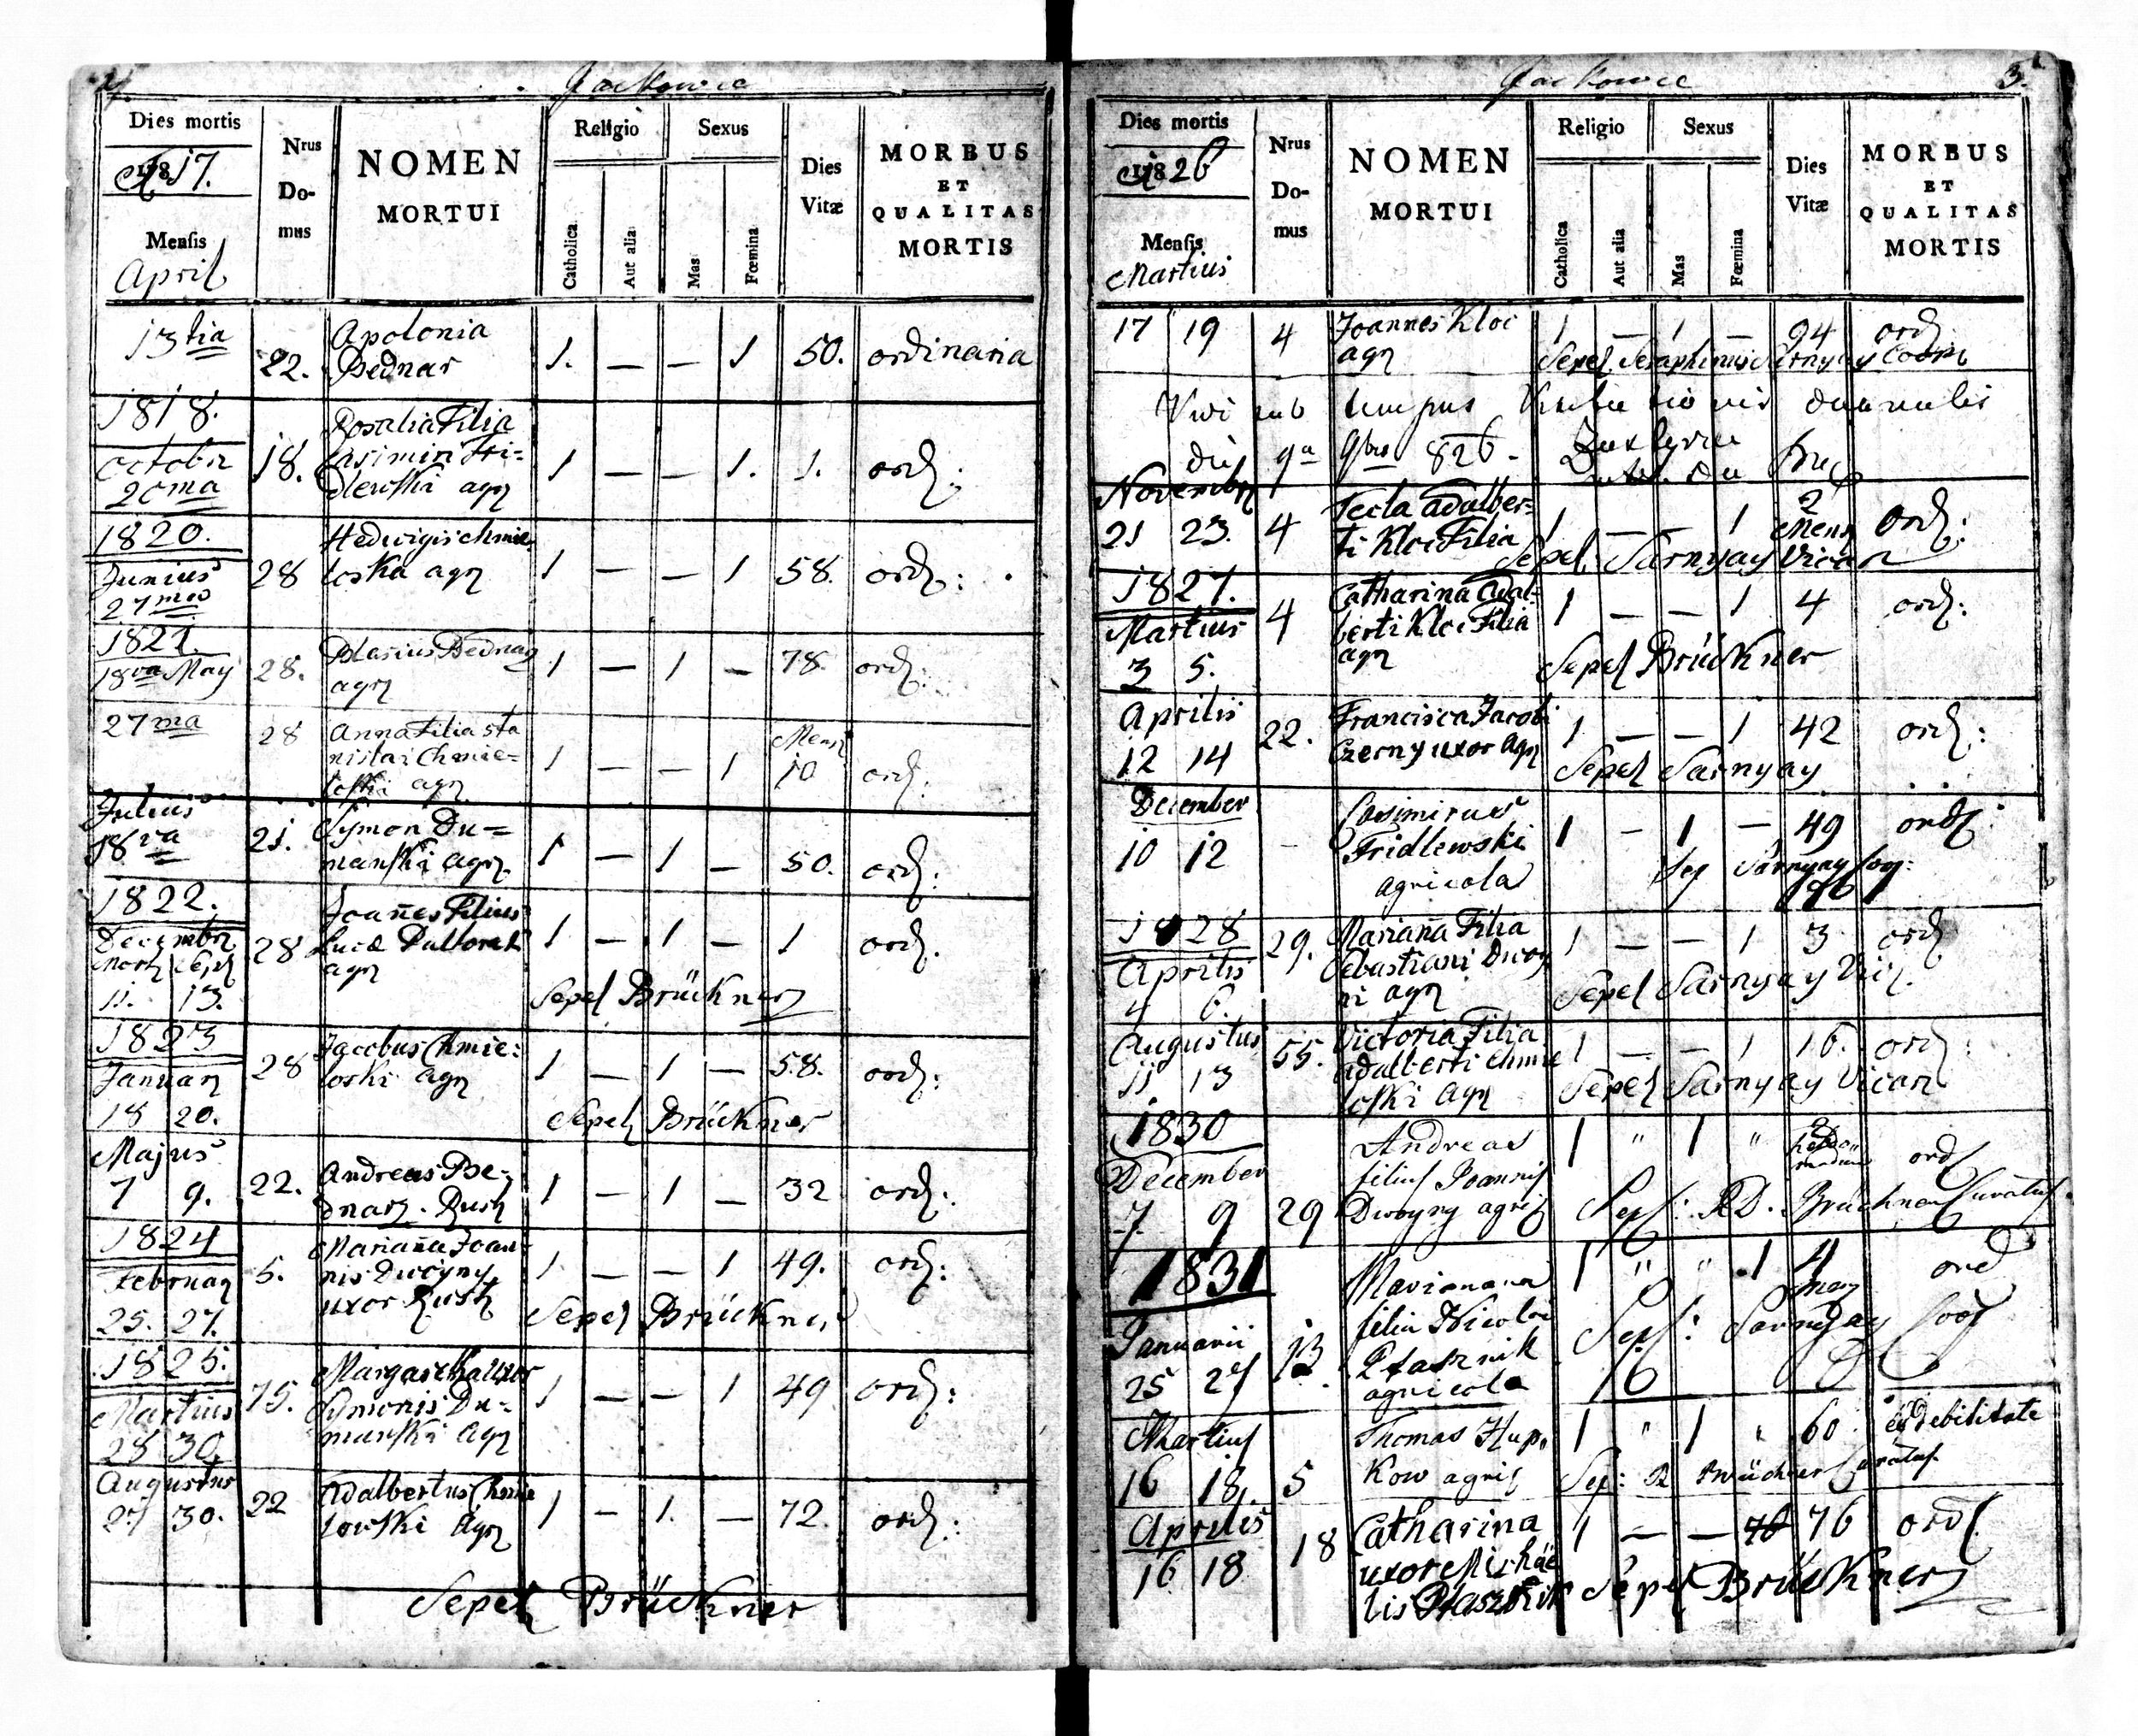 Jackowce
Dies mortis
1817.
Mensis
April
Nrus
Do-
mus
NOMEN
MORTUI
Religio
Catholica
Aut alia
Sexus
Mas
Fœmina
Dies
Vitæ
MORBUS
ET
QUALITAS
MORTIS
13tia 22. Apolonia
Bednar 1. — — 1 50. ordinaria
1818.
October
20ma 18. Rosalia Filia
Casimiri Fri-
dlewski agr 1 — — 1. 1. ord:
1820.
Junius
27mo 28 Hedwigis Chmie
loska agr 1 — — 1 58. ord:
1821.
18va May 28. Blasius Bednarz
agr 1 — 1 — 78. ord:
27ma 28 Anna Filia Sta
nislai Chmie-
loski agr 1 — — 1 Mens
10 ord:
Julius
18va 21. Symon Du-
manski agr. 1 — 1 — 50. ord:
1822.
Decembr
Mort Sepel
11. 13. 28 Joanes Filius
Lucæ
agr 1 — 1 — 1 ord.
Sepel Brückner
1823
Januar
18 20. 28 Jacobus Chmie:
loski agr 1 — 1 — 58. ord:
Sepel Brückner
Majus
7 9. 22. Andreas Be-
dnarz. Rust 1 — 1 — 32 ord:
1824
Februar
25. 27. 5. Mariana Joan-
nis Dwoyny
uxor Rust 1 — — 1 49. ord:
Sepel Brückner
1825.
Martius
28 30. 75. Margaretha uxor
Symonis Du-
manski agr 1 — — 1 49 ord:
Augustus
27 30. 22 Adalbertus Chmie
lowski agr 1 — 1. — 72. ord:
Sepel Brückner
Jackowce
3.
Dies mortis
1826
Mensis
Martius
Nrus
Do-
mus
NOMEN
MORTUI
Religio
Catholica
Aut alia
Sexus
Mas
Fœmina
Dies
Vitæ
MORBUS
ET
QUALITAS
MORTIS
17 19 4 Joannes Kloc
agr 1 — 1 — 94 ord
Sepel Seraphinus Sarnyay Coop
sub tempus
9a 9bris 826.
Novembr
21 23. 4 Tecla Adalber-
ti Kloc Filia 1 — — 1 2
Mens ord:
Sepel Sarnyay Vicar
1827.
Martius
3 5. 4 Catharina Adal-
berti Kloc Filia
agr 1 — — 1 4 ord:
Sepel Brückner
Aprilis
12 14 22. Francisca Jacobi
Czerny uxor agr 1 — — 1 42 ord:
Sepel Sarnyay
December
10 12 — Casimirus
Fridlewski
agricola 1 — 1 — 49 ord:
Sep Sarnyay Coop:
1828
Aprilis
4 6. 29. Mariana Filia
Sebastiani Dwoy
ni agr 1 — — 1 3 ord
Sepel Sarnyay Vic.
Augustus
11 13 55. Victoria Filia
Adalberti Chmie
loski agr 1 — — 1 16. ord:
Sepel Sarnyay Vicar
1830
December
7. 9 29 Andreas
filius Joannis
Dwoyny agri 1 " 1 " ord
Sepel: RD. Brückner Curatus.
1831
Januarii
25 27 13 Marianna
filia Nicolai
Ptasznik
agricola 1 " " 1 4 ord
Sepel: Sarnyay Coop
Martius
16 18. 5 Thomas Hup.
kow agri 1 " 1 " 60 ex debilitate
Sep: R Brückner Curatus.
Aprilis
16 18 18 Catharina
uxor Michae
lis Ptasznik 1 — — 76 76 ord
Sepel Brückner